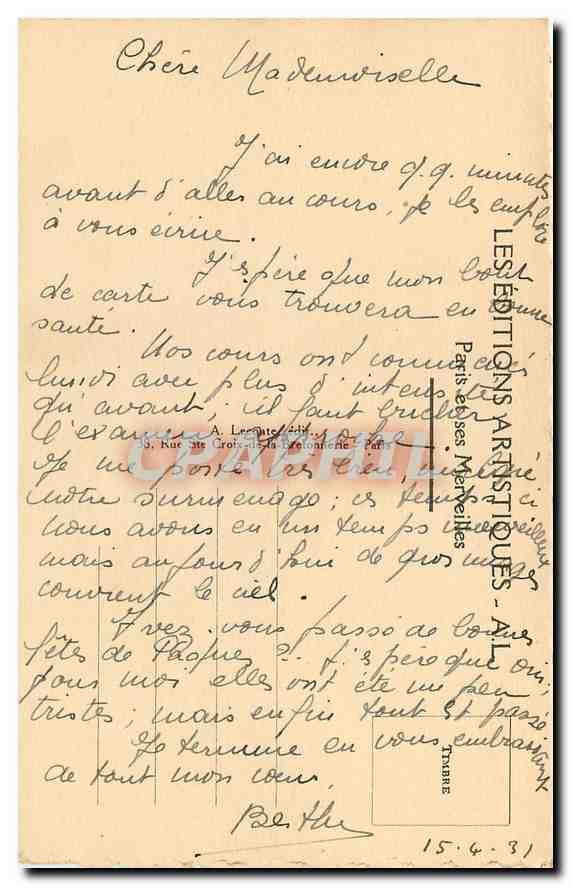 Chère Mademoiselle
J'ai encore q.q. minutes
avant d'aller au cours, je les emploie
à vous écrire.
J'espère que mon bout
de carte vous trouvera en bonne
santé.
Nos cours ont commencé
lundi avec plus d'intensité
qu'avant; il faut bucher
l'examen
Je me porte très bien, malgré
notre surmenage; ces temps ci
nous avons eu un temps merveilleux
mais aujourd'hui de gros nuages
couvrent le ciel.
Avez-vous passé de bonnes
fêtes de Pâques? J'espère que oui;
pour moi elles ont été un peu
tristes; mais enfin tout est passé
Je termine en vous embrassant
de tout mon cœur.
Berthe
15.4.31
LES ÉDITIONS ARTISTIQUES - A.L.
Paris et ses Merveilles
A. Leconte, édit.
38, Rue Ste Croix-de-la-Bretonnerie - Paris
TIMBRE
CPAPHIL